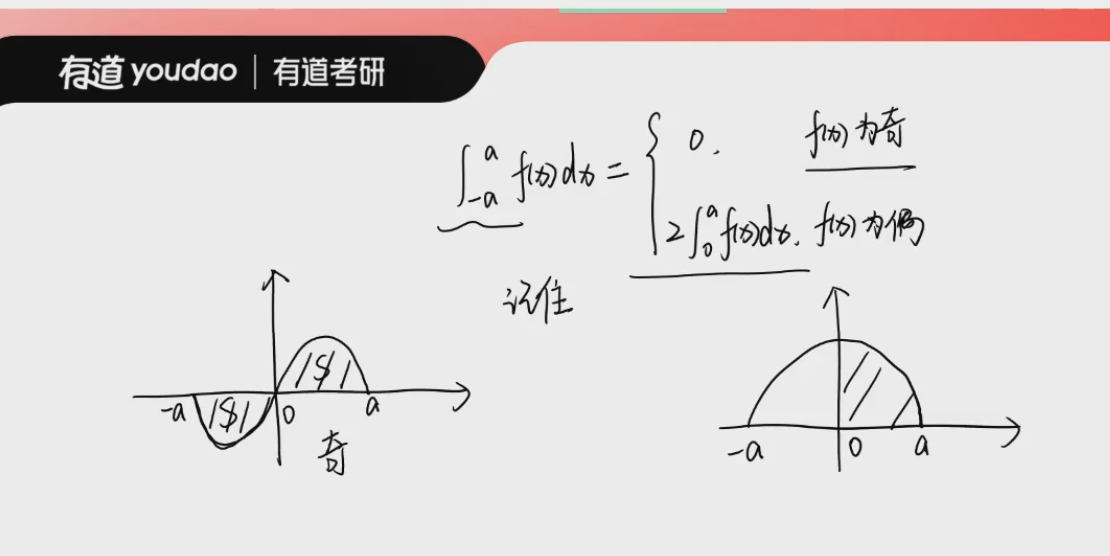 有道 youdao | 有道考研
∫_{-a}^{a} f(x)dx = { 0, f(x)为奇
2∫_{0}^{a} f(x)dx, f(x)为偶
记住
S
-a S 0 a
奇
-a 0 a